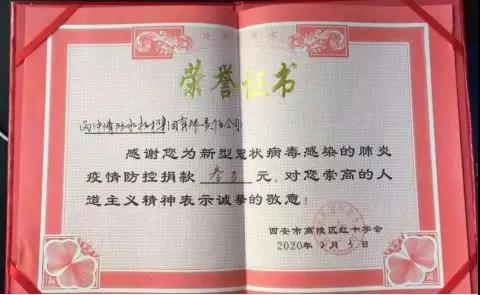 荣誉证书
雨中情防水技术集团有限责任公司:
感谢您为新型冠状病毒感染的肺炎
疫情防控捐款 叁万 元,对您崇高的人
道主义精神表示诚挚的敬意!
西安市高陵区红十字会
2020年2月5日